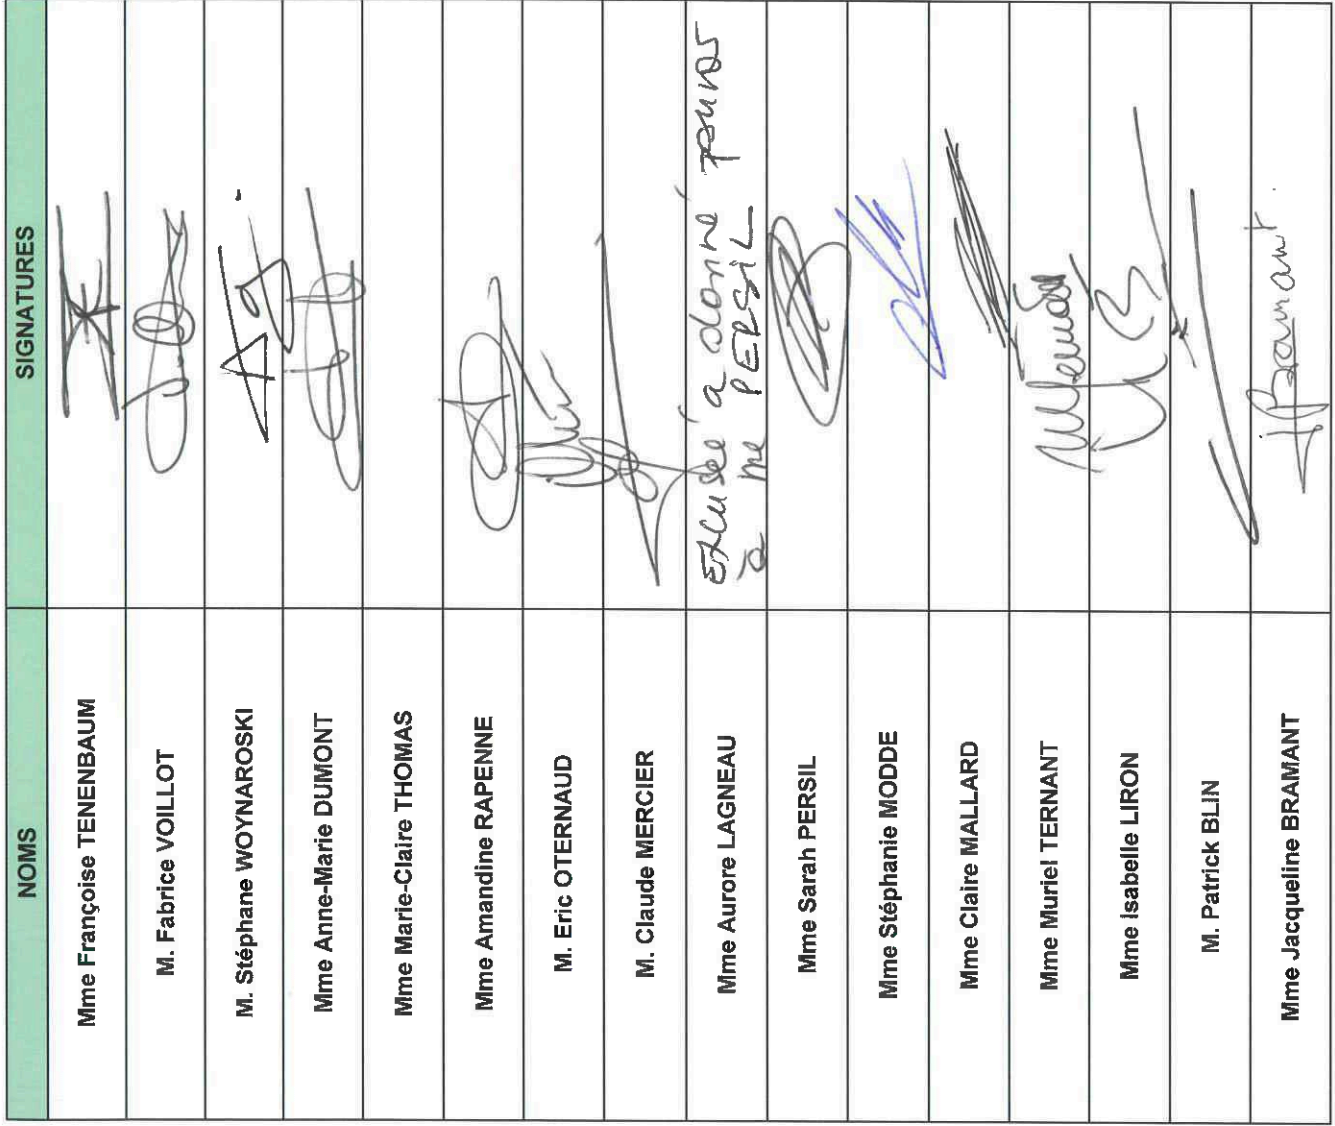 NOMS SIGNATURES
Mme Françoise TENENBAUM
M. Fabrice VOILLOT
M. Stéphane WOYNAROSKI
Mme Anne-Marie DUMONT
Mme Marie-Claire THOMAS
Mme Amandine RAPENNE
M. Eric OTERNAUD
M. Claude MERCIER
Mme Aurore LAGNEAU Excusée a donné
à Me PERSIL
Mme Sarah PERSIL
Mme Stéphanie MODDE
Mme Claire MALLARD
Mme Muriel TERNANT
Mme Isabelle LIRON
M. Patrick BLIN
Mme Jacqueline BRAMANT